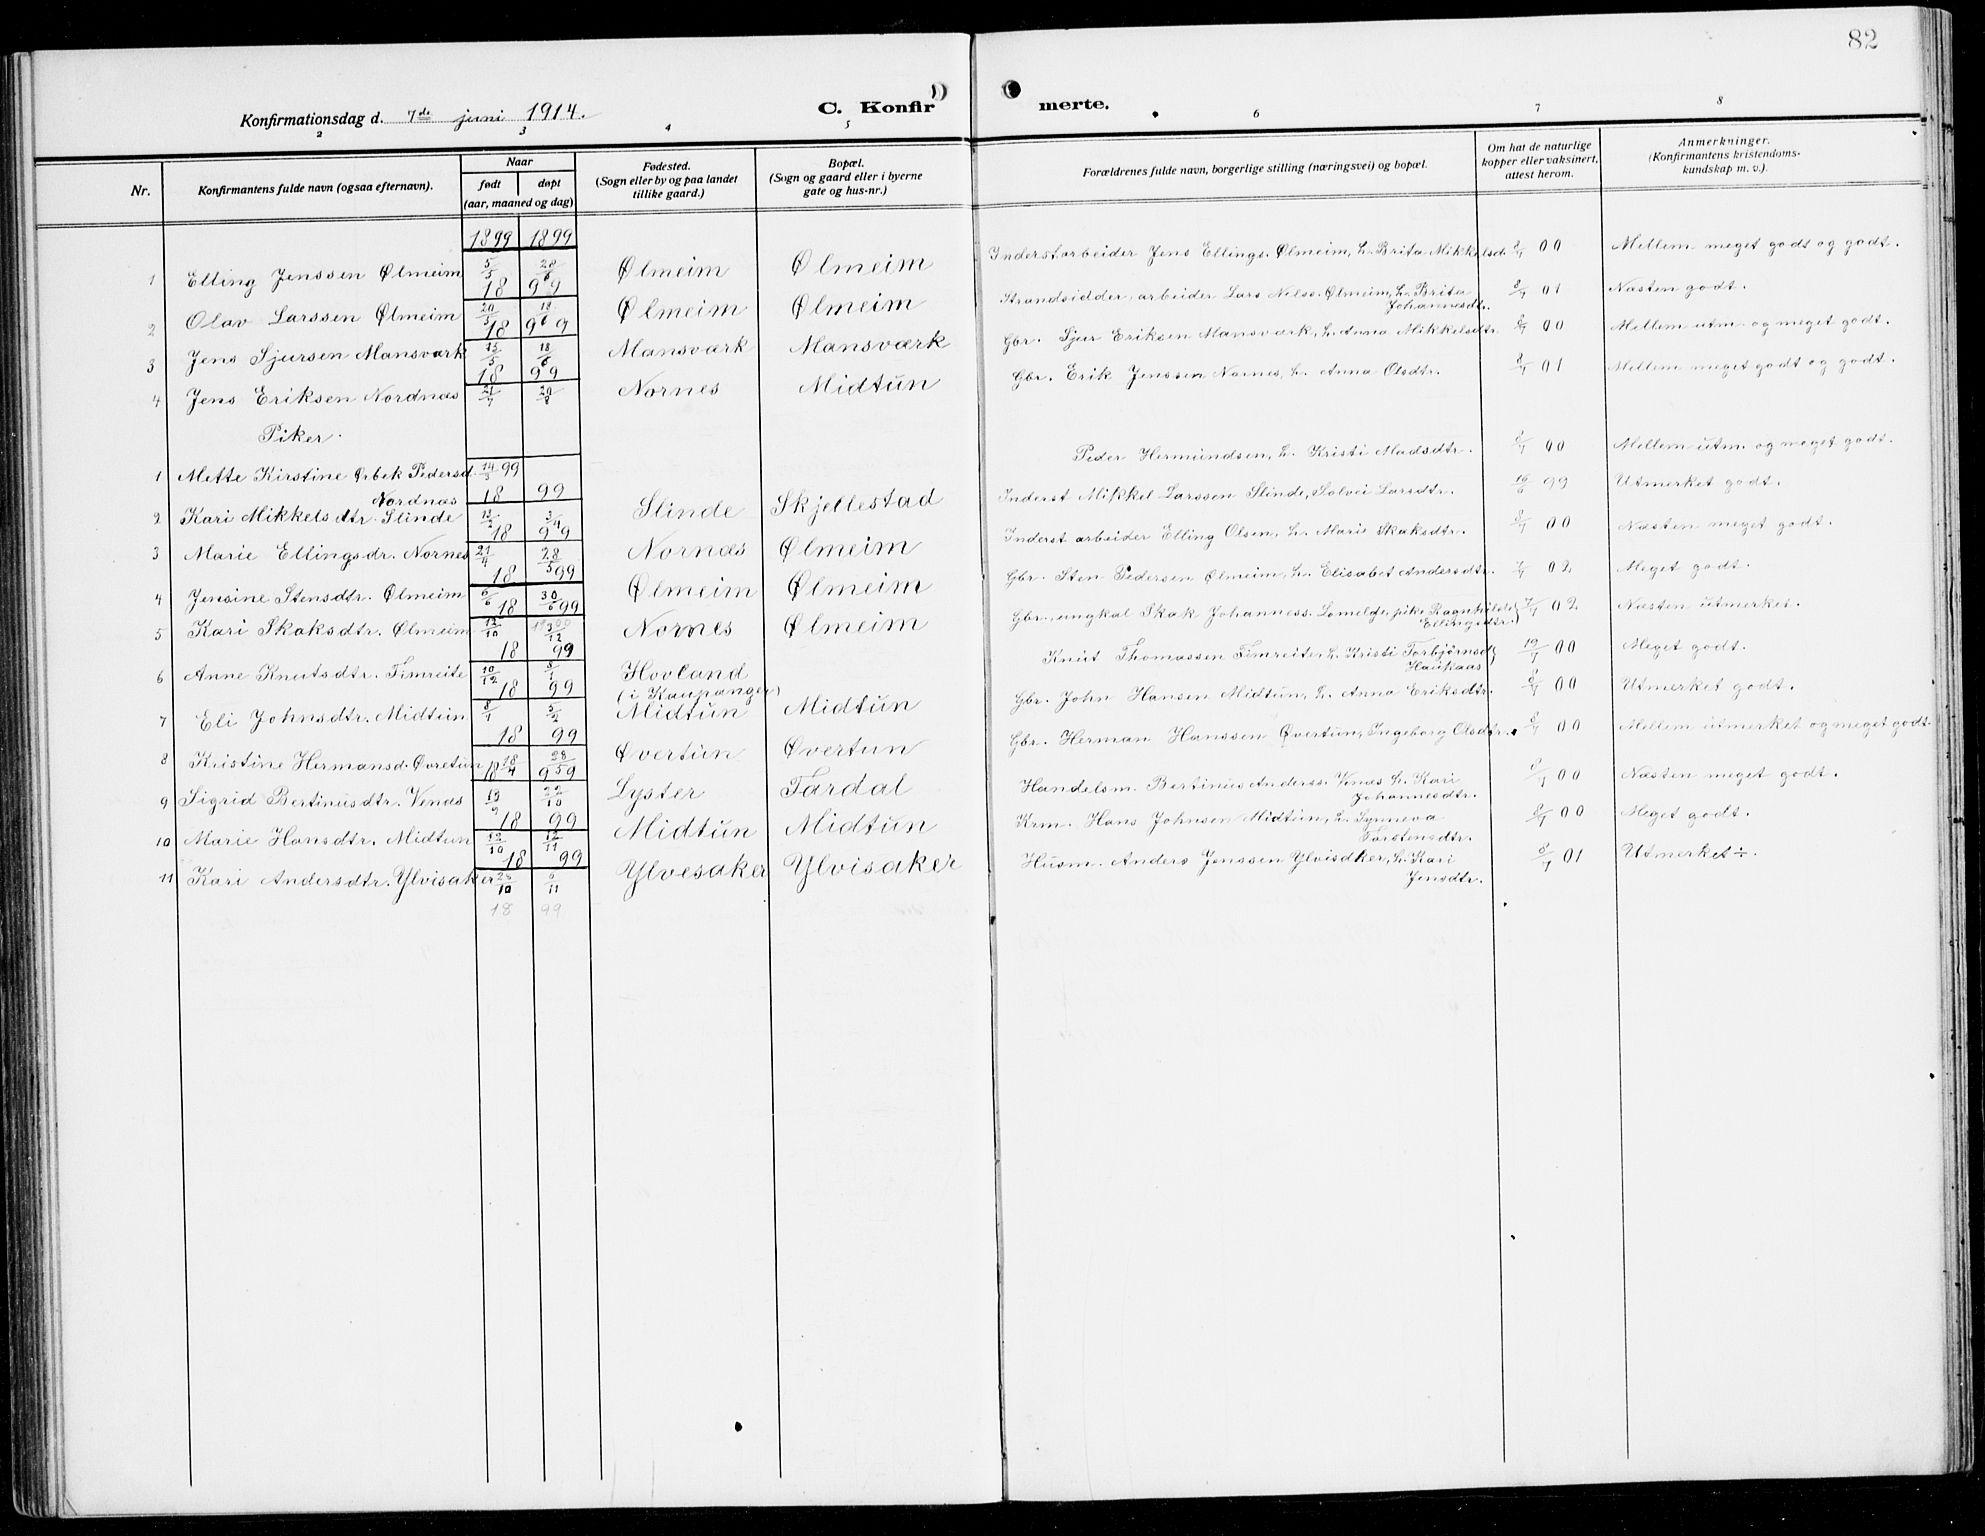 82
Konfirmationsdag d. 7de juni 1914.
C. Konfir
merte.
2 3 4 5 6 7 8
Nr.
Konfirmantens fulde navn (ogsaa efternavn).
Naar
født døpt
(aar, maaned og dag)
Fødested.
(Sogn eller by og paa landet
tillike gaard.)
Bopæl.
(Sogn og gaard eller i byerne
gate og hus-nr.)
Forældrenes fulde navn, borgerlige stilling (næringsvei) og bopæl.
Om hat de naturlige
kopper eller vaksinert,
attest herom.
Anmerkninger.
(Konfirmantens kristendoms-
kundskap m. v.).
1899 1899
1 Elling Jenssen Ølmeim 5/5 28/6 Ølmeim Ølmeim Inderst arbeider Jens Ellings. Ølmeim, h. Brita Mikkelsd. 00 Mellem meget godt og godt.
18 99
2 Olav Larssen Ølmeim 20/5 18/6 Ølmeim Ølmeim Strandsidder, arbeider Lars Nilss. Ølmeim, h. Brita 01 Næsten godt.
Johannesdtr.
18 99
3 Jens Sjursen Mansværk 15/5 18/6 Mansværk Mansværk Gbr. Sjur Eriksen Mansværk, h. Anna Mikkelsdtr. 00 Mellem utm. og meget godt.
18 99
4 Jens Eriksen Nordnæs 21/7 20/8 Nornes Midtun Gbr. Erik Jenssen Nornes, h. Anna Olsdtr. 01 Mellem meget godt og godt.
Piker.
1 Mette Kirstine Ørbek Pedersd. 14/3 99 Peder Hermundsen, h. Kristi Madsdtr. 00 Mellem utm. og meget godt.
Nordnæs 18 99
2 Kari Mikkelsdtr. Slinde 13/2 3/4 Slinde Skjellestad Inderst Mikkel Larssen Slinde, Solvei Larsdtr. 99 Utmerket godt.
18 99
3 Marie Ellingsdr. Nornes 21/4 28/5 Nornæs Ølmeim Inderst arbeider Elling Olsen, h. Mari Skaksdtr. 00 Næsten meget godt.
18 99
4 Jensine Stensdtr. Ølmeim 6/6 30/6 Ølmeim Ølmeim Gbr. Sten Pedersen Ølmeim, h. Elisabet Andersdtr. 02 Meget godt.
18 99
5 Kari Skaksdtr. Ølmeim 12/10 3/12 Nornes Ølmeim Gbr., ungkal Skak Johanness. Lomelde, pike Ragnhilde 02 Næsten utmerket.
Ellingsdtr.)
18 99
6 Anne Knutsdtr. Timreite 10/12 5/1 Hovland Knut Thomassen Timreite, h. Kristi Torbjørnsd. 00 Meget godt.
Haukaas
(i Kaupanger)
18 99
7 Eli Johnsdtr. Midtun 8/1 5/2 Midtun Midtun Gbr. John Hansen Midtun, h. Anna Eriksdtr. 00 Utmerket godt.
18 99
8 Kristine Hermansd. Øvretun 18/4 28/5 Øvertun Øvertun Gbr. Herman Hanssen Øvertun, Ingeborg Olsdtr. 00 Mellem utmerket og meget godt.
18 99
9 Sigrid Bertinusdtr. Venæs 13/9 22/10 Lyster Tardal Handelsm. Bertinus Anderss. Venæs h. Kari 00 Næsten meget godt.
Johannesdtr.
18 99
10 Marie Hansdtr. Midtun 12/10 12/11 Midtun Midtun Krm. Hans Johnsen Midtun, h. Synneva 00 Meget godt.
Torstensdtr.
18 99
11 Kari Andersdtr. Ylvisaker 25/10 6/11 Ylvesaker Ylvisaker Husm. Anders Jenssen Ylvisaker, h. Kari 01 Utmerket ÷.
Jensdtr.
18 99